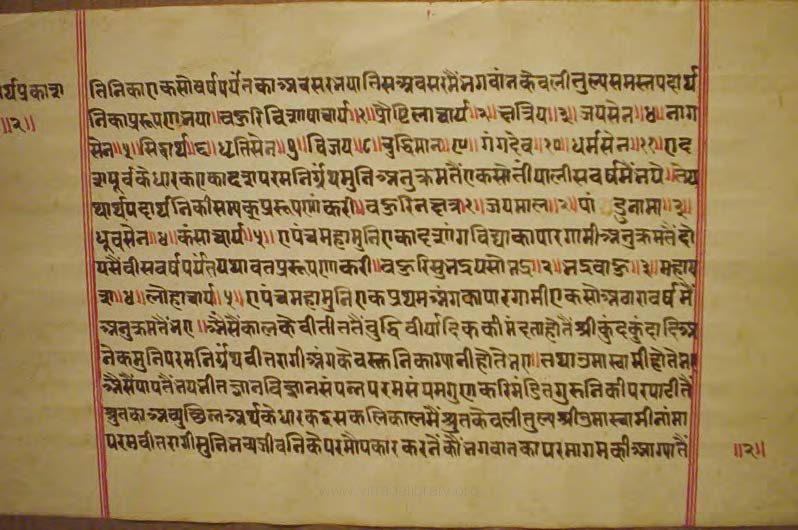 र्थप्रकाशा
॥२॥
तिनिकाएकसौवर्षपर्यंतकाअवसरभयातिसअवसरमैंभगवांनकेवलीतुल्यसमस्तपदार्थ
निकाप्ररूपणभया॥बहुरिविशाषाचार्य॥१॥प्रौष्टिलाचार्य॥२॥क्षत्रिय॥३॥जयसेन॥४॥नाग
सेन॥५॥सिद्धार्थ॥६॥धृतिसेन॥७॥विजय॥८॥बुद्धिमान॥९॥गंगदेव॥१०॥धर्मसेन॥११॥एद
शपूर्वकेधारकएकादशपरमनिर्ग्रंथमुनिअनुक्रमतैंएकसौतीयालीसवर्षमैंभये॥तेय
थार्थपदार्थनिकीसम्यक्प्ररूपणांकरी॥बहुरिनक्षत्र॥१॥जयमाल॥२॥पांडुनामा॥३॥
ध्रुवसेन॥४॥कंसाचार्य॥५॥एपंचमहामुनिएकादशांगविद्याकापारगामीअनुक्रमतैंदो
यसैंवीसवर्षपर्यंतयथावतप्ररूपणकरी॥बहुरिसुभद्र॥१॥यसोभद्र॥२॥भद्रबाहु॥३॥महाय
श॥४॥लौहाचार्य॥५॥एपंचमहामुनिएकप्रथमअंगकापारगामीएकसोअठारावर्षमैं
अनुक्रमतैंभए॥अैसैंकालकेवीतीततैंबुद्धिवीर्यादिककीमंदताहोतैंश्रीकुंदकुंदादिअ
नेकमुनिपरमनिर्ग्रंथवीतरागीअंगकेवस्तुनिकाग्यानीहोतेभए॥तथाउमास्वामीहोतेभए
अैसैंपापतैंभयभीतज्ञानविज्ञानसंपन्नपरमसंयमगुणकरिमंडितगुरुनिकीपरपाटीतैं
श्रुतकाअव्युछित्तअर्थकेधारकइसकलिकालमैंश्रुतकेवलीतुल्यश्रीउमास्वामीनांमा
परमवीतरागीमुनिभव्यजीवनिकेपरमौपकारकरतेंकौंभगवानकापरमागमकीआग्यातैं
॥२॥